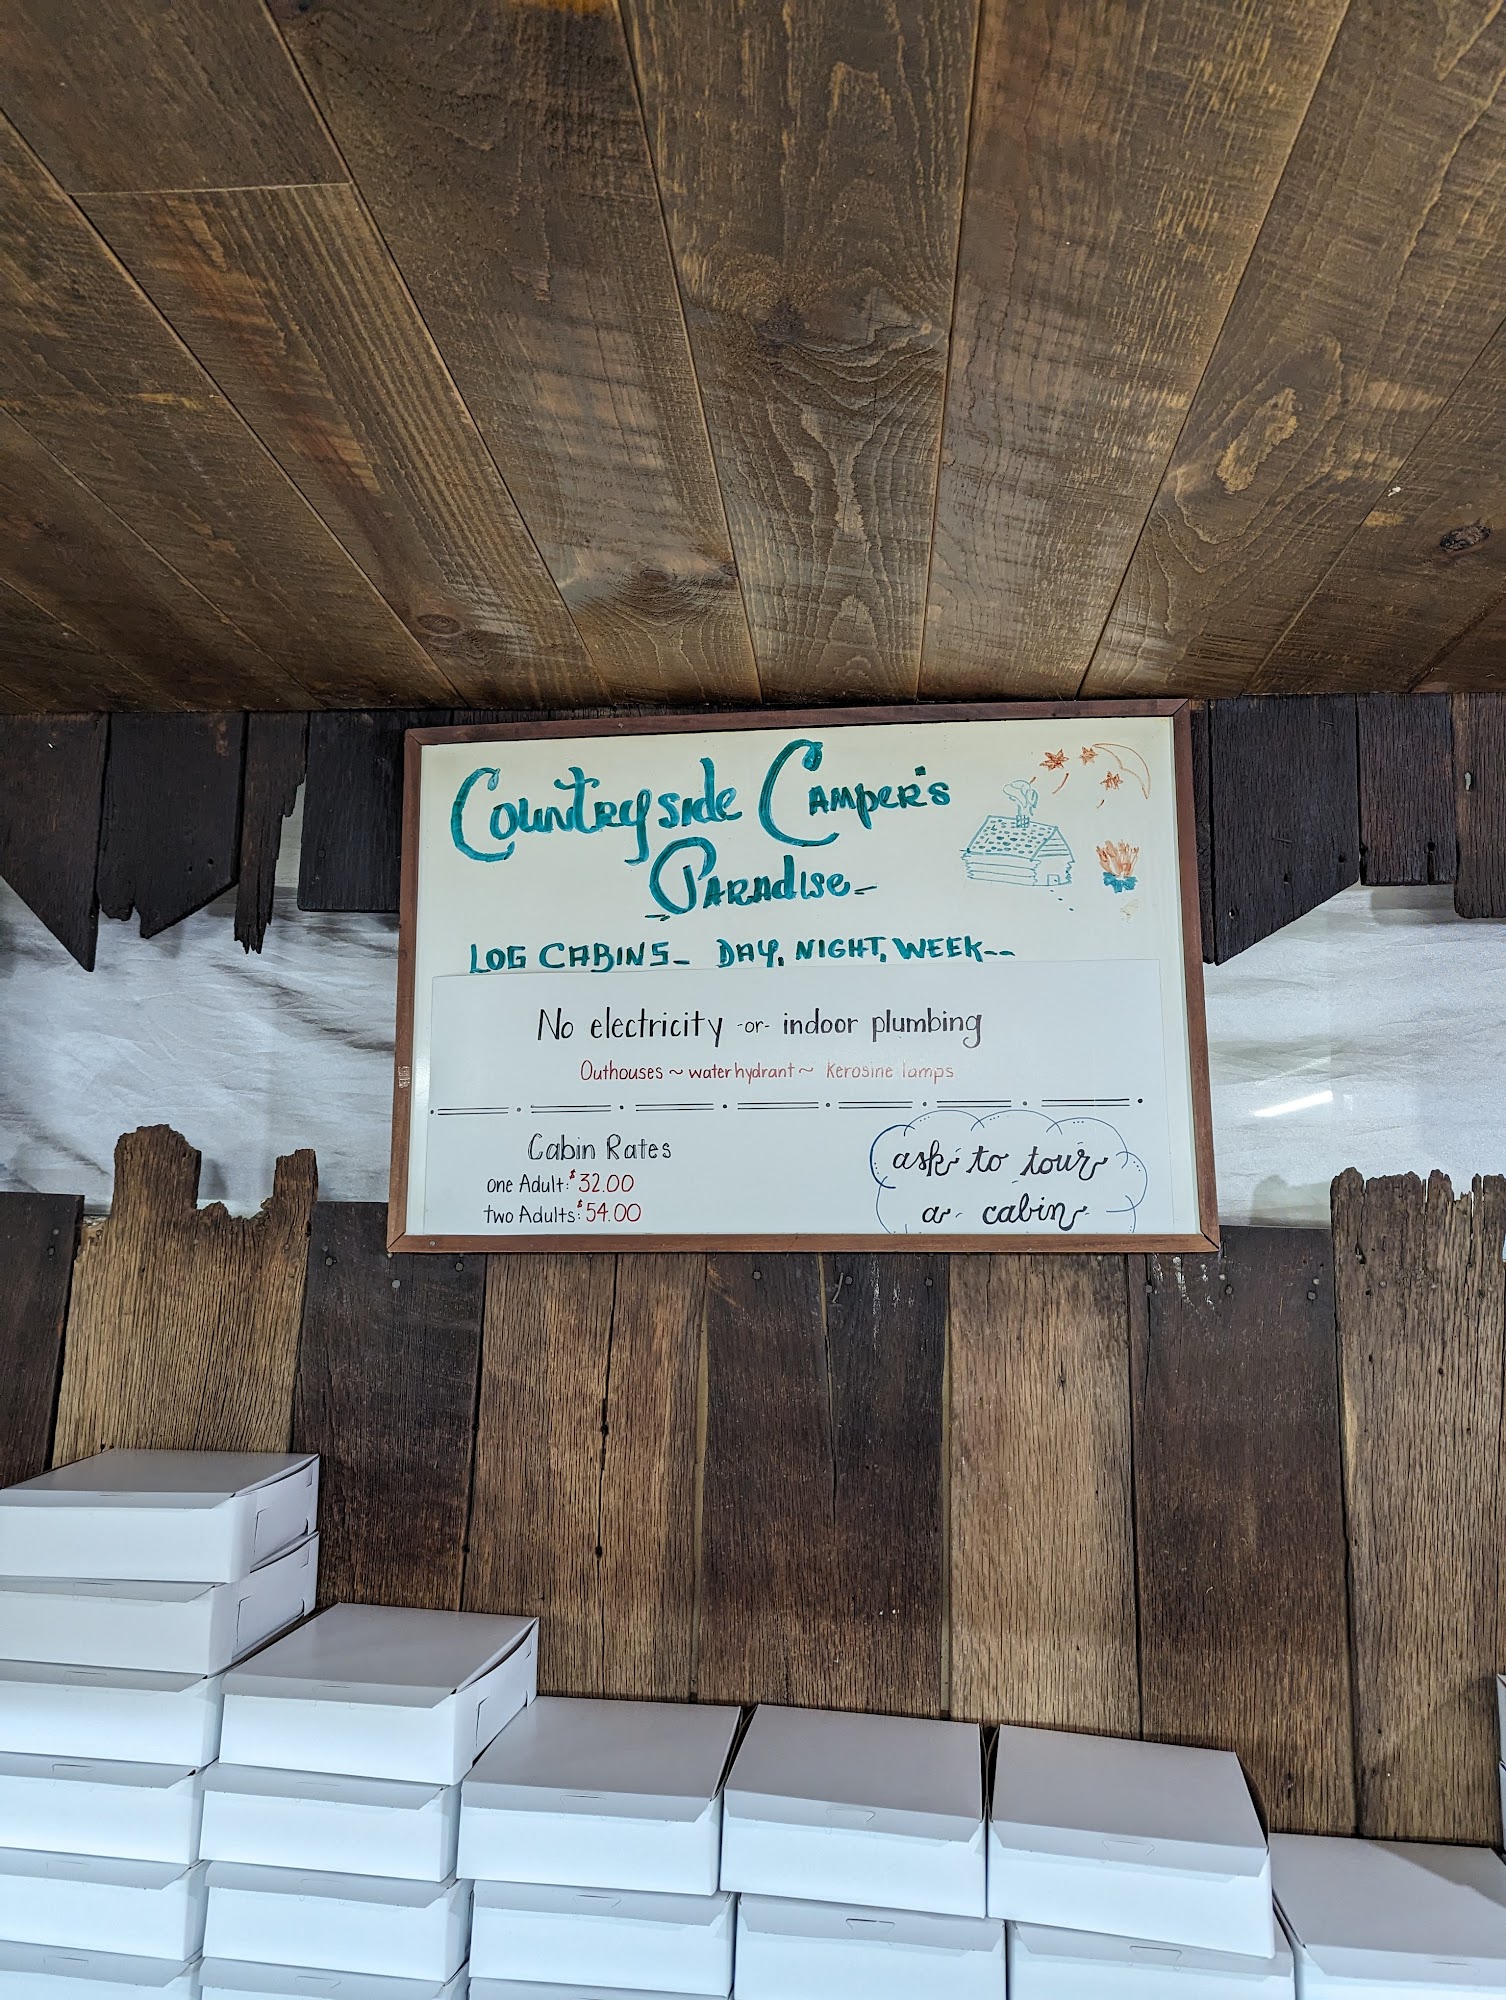 Countryside Camper's
Paradise
LOG CABINS - DAY, NIGHT, WEEK--
No electricity -or- indoor plumbing
Outhouses ~ water hydrant ~ Kerosine lamps
Cabin Rates
one Adult: $32.00
two Adults: $54.00
ask to tour
a cabin